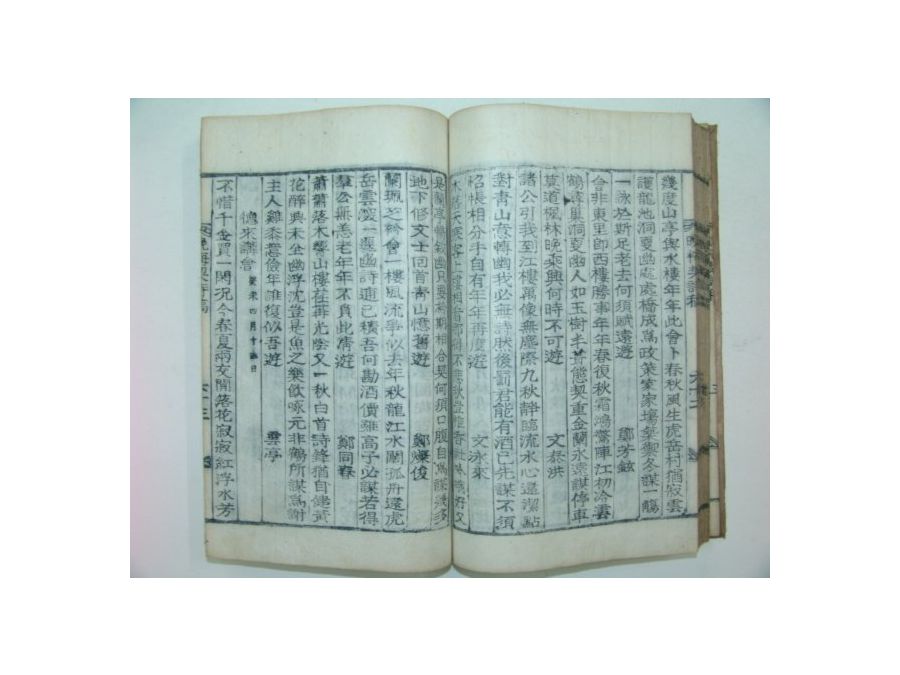 幾度山亭與水樓年年此會卜春秋風生虎岳村猶寂雲
護龍池洞更幽處處橋成爲政策家家壤葉禦冬謀一觴
一詠於斯足老去何須賦遠遊 鄭芳鉉
會非東里卽西樓勝事年年春復秋霜鴻驚陣江初冷雲
鶴尋巢洞更幽人如玉樹半菩態契重金蘭永遠謀停車
莫道楓林晩乘興何時不可遊 文泰洪
諸公引我到江樓萬像無塵際九秋靜臨流水心還潔點
對靑山意轉幽我必無詩猷後罰君能有酒已先謀不須
怊悵相分手自有年年再度遊 文泳來
是蘭亭修敍幽只要前期相合契何須口腹自爲謀幾多
地下修文士回首靑山憶舊遊 鄭燦俊
蘭珮之鈴會一樓風流爭似去年秋龍江水闊孤舟還虎
岳雲深一逕幽詩逋已積吾何勘酒價雖高子必謀若得
羣公無恙老年年不負此淸遊 鄭同春
蕭蕭落木響山樓荏苒光陰又一秋白首詩鋒猶自健黃
花醉興未全幽浮沈豈是魚之樂飮啄元非鶴所謀爲謝
主人雞黍意儉年誰復似吾遊 雲亭
德來講會 癸未四月十 日
不惜千金買一閑況今春夏兩交間落花寂寂紅浮水芳